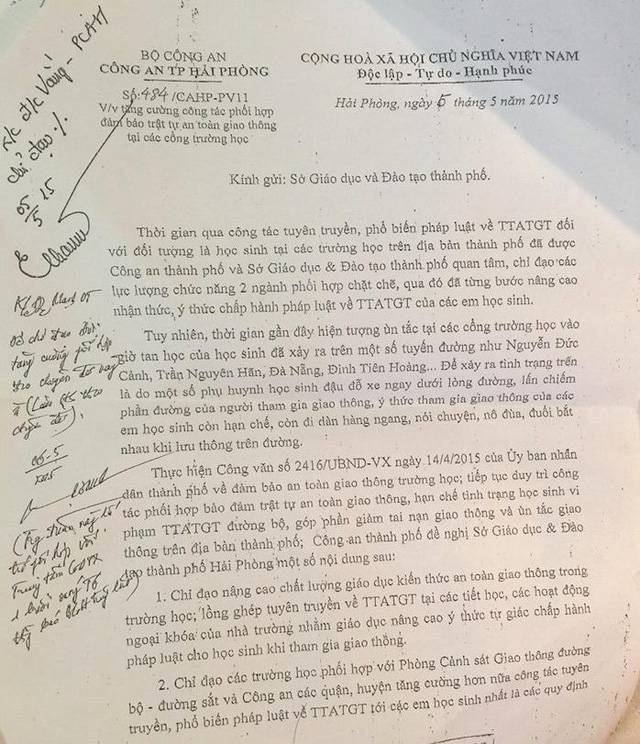 BỘ CÔNG AN
CÔNG AN TP HẢI PHÒNG
Số: 484/CAHP-PV11
V/v tăng cường công tác phối hợp
đảm bảo trật tự an toàn giao thông
tại các cổng trường học
CỘNG HOÀ XÃ HỘI CHỦ NGHĨA VIỆT NAM
Độc lập - Tự do - Hạnh phúc
Hải Phòng, ngày 5 tháng 5 năm 2015
Kính gửi: Sở Giáo dục và Đào tạo thành phố.
Thời gian qua công tác tuyên truyền, phổ biến pháp luật về TTATGT đối
với đối tượng là học sinh tại các trường học trên địa bàn thành phố đã được
Công an thành phố và Sở Giáo dục & Đào tạo thành phố quan tâm, chỉ đạo các
lực lượng chức năng 2 ngành phối hợp chặt chẽ, qua đó đã từng bước nâng cao
nhận thức, ý thức chấp hành pháp luật về TTATGT của các em học sinh.
Tuy nhiên, thời gian gần đây hiện tượng ùn tắc tại các cổng trường học vào
giờ tan học của học sinh đã xảy ra trên một số tuyến đường như Nguyễn Đức
Cảnh, Trần Nguyên Hãn, Đà Nẵng, Đinh Tiên Hoàng... Để xảy ra tình trạng trên
là do một số phụ huynh học sinh đậu đỗ xe ngay dưới lòng đường, lấn chiếm
phần đường của người tham gia giao thông, ý thức tham gia giao thông của các
em học sinh còn hạn chế, còn đi dàn hàng ngang, nói chuyện, nô đùa, đuổi bắt
nhau khi lưu thông trên đường.
Thực hiện Công văn số 2416/UBND-VX ngày 14/4/2015 của Ủy ban nhân
dân thành phố về đảm bảo an toàn giao thông trường học; tiếp tục duy trì công
tác phối hợp bảo đảm trật tự an toàn giao thông, hạn chế tình trạng học sinh vi
phạm TTATGT đường bộ, góp phần giảm tai nạn giao thông và ùn tắc giao
thông trên địa bàn thành phố; Công an thành phố đề nghị Sở Giáo dục & Đào
tạo thành phố Hải Phòng một số nội dung sau:
1. Chỉ đạo nâng cao chất lượng giáo dục kiến thức an toàn giao thông trong
trường học; lồng ghép tuyên truyền về TTATGT tại các tiết học, các hoạt động
ngoại khóa của nhà trường nhằm giáo dục nâng cao ý thức tự giác chấp hành
pháp luật cho học sinh khi tham gia giao thông.
2. Chỉ đạo các trường học phối hợp với Phòng Cảnh sát Giao thông đường
bộ - đường sắt và Công an các quận, huyện tăng cường hơn nữa công tác tuyên
truyền, phổ biến pháp luật về TTATGT tới các em học sinh nhất là các quy định
đ/c Vàng - PCAH
chỉ đạo
05/5 15